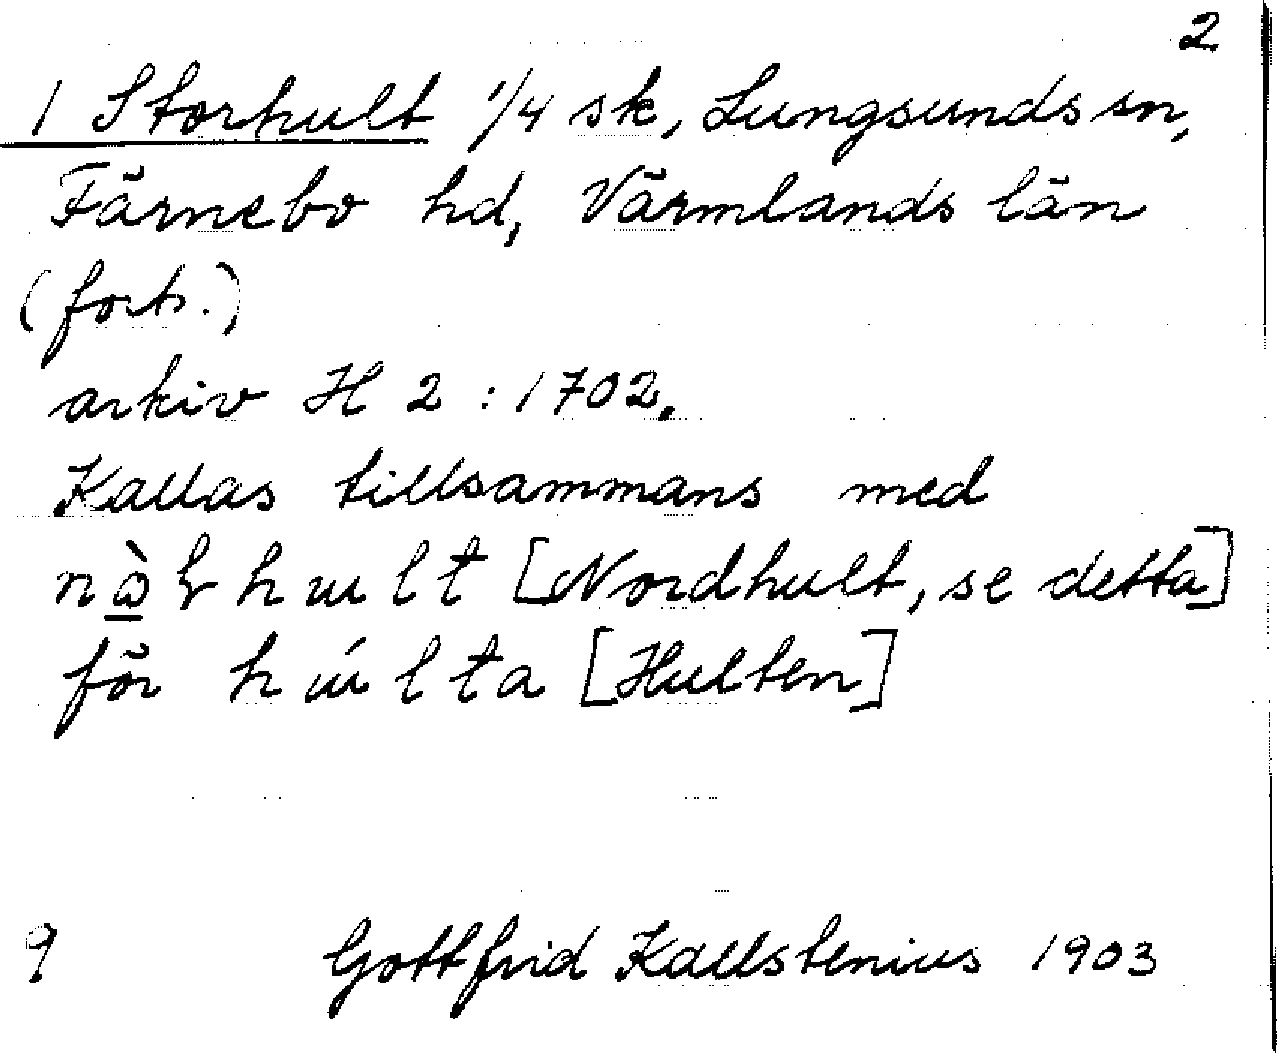 2
1 Storhult 1/4 sk, Lungsunds sn,
Färnebo hd, Värmlands län
(forts.)
arkiv H 2 : 1702.
Kallas tillsammans med
[Nordhult, se detta]
för [Hulten]
9 Gottfrid Kallstenius 1903